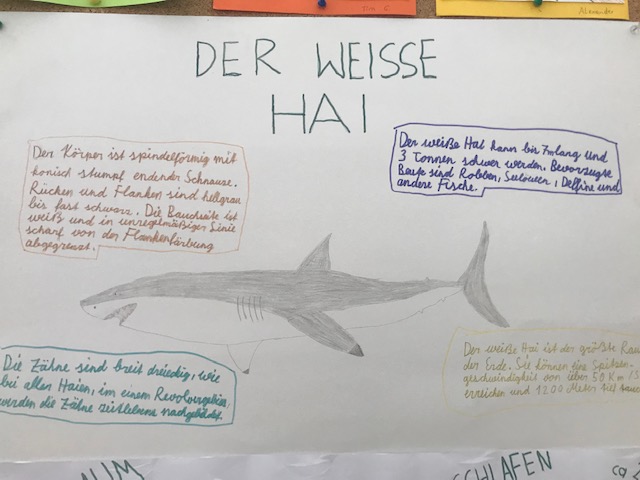 Alexander
DER WEISSE
HAI
Der Körper ist spindelförmig mit
konisch stumpf endender Schnauze.
Rücken und Flanken sind hellgrau
bis fast schwarz. Die Bauchseite ist
weiß und in unregelmäßiger Linie
scharf von der Flankenfärbung
abgegrenzt.
Der weiße Hai kann bis 7m lang und
3 Tonnen schwer werden. Bevorzugte
Beute sind Robben, Seelöwen, Delfine und
andere Fische.
Die Zähne sind breit dreiedig, wie
bei allen Haien, im einem Revolvergebiss,
werden die Zähne zeitlebens nachgebildet.
Der weiße Hai ist der größte Rau
der Erde. Sie können eine Spitzen-
geschwindigkeit von über 50 Km/S
erreichen und 1200 Meter tief tauc
AUM
SCHLAFEN
ca